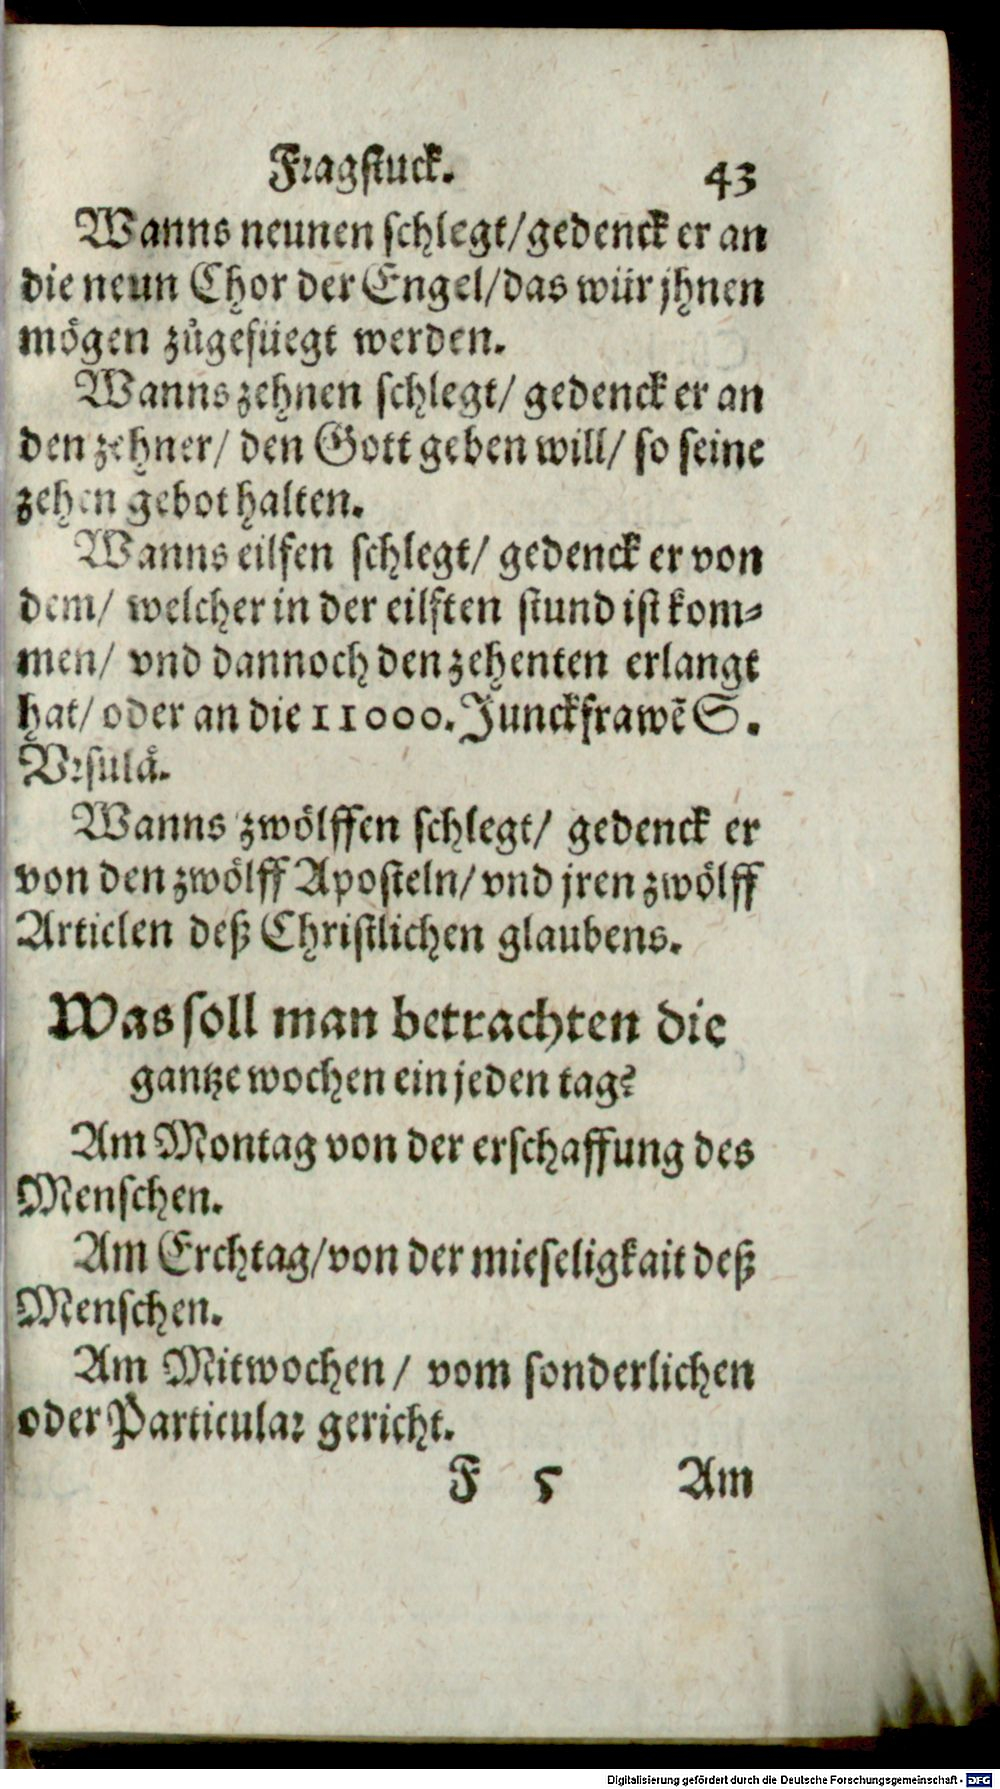 Fragstuck. 43
Wanns neunen schlegt/gedenck er an
die neun Chor der Engel/das wür jhnen
mögen zůgefüegt werden.
Wanns zehnen schlegt/ gedenck er an
den zehner/ den Gott geben will/ so seine
zehen gebot halten.
Wanns eilfen schlegt/ gedenck er von
dem/ welcher in der eilften stund ist kom⸗
men/ vnd dannoch den zehenten erlangt
hat/ oder an die 11000. Junckfrawē S.
Vrsulä.
Wanns zwölffen schlegt/ gedenck er
von den zwölff Aposteln/ vnd jren zwölff
Articlen deß Christlichen glaubens.
Was soll man betrachten die
gantze wochen ein jeden tag?
Am Montag von der erschaffung des
Menschen.
Am Erchtag/von der mieseligkait deß
Menschen.
Am Mitwochen/ vom sonderlichen
oder Particular gericht.
F 5 Am
Digitalisierung gefördert durch die Deutsche Forschungsgemeinschaft - DFG